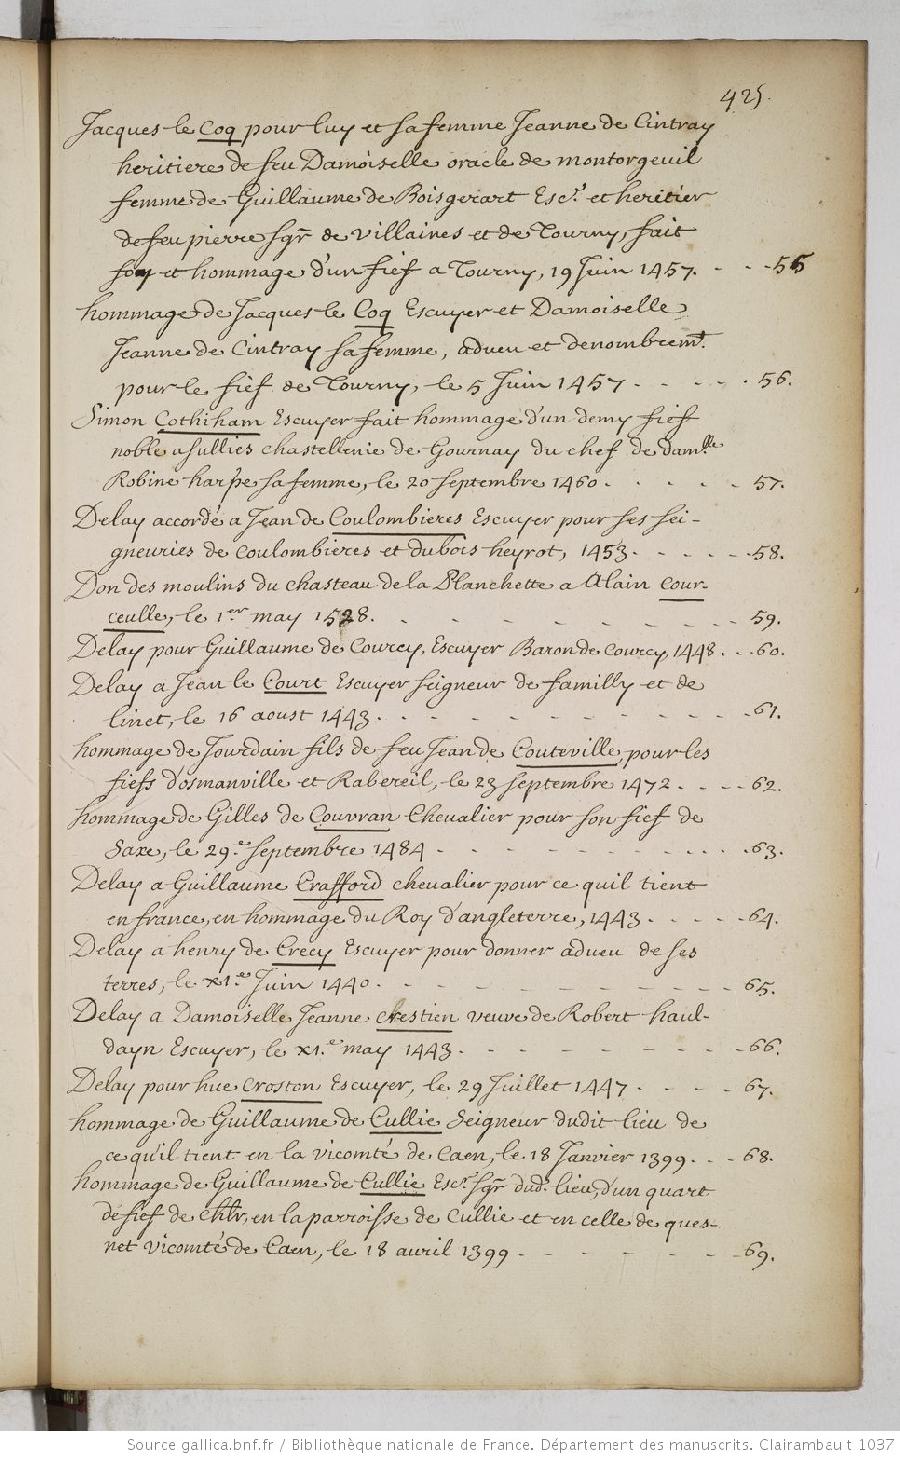 425.
Jacques le Coq pour luy et sa femme Jeanne de Cintray
heritiere de feu Damoiselle oracle de montorgeuil
femme de Guillaume de Boisgerart Escr. et heritier
de feu pierre sgr de Villaines et de Tourny, fait
foy et hommage d'un fief a Tourny, 19 Juin 1457. - - - 55
hommage de Jacques le Coq Escuyer et Damoiselle
Jeanne de Cintray sa femme, adveu et denombremt.
pour le fief de Tourny, le 5 Juin 1457 - - - - - 56.
Simon Cothiham Escuyer fait hommage d'un demy fief
noble a sullies chastellenie de Gournay du chef de damlle
Robine harpe sa femme, le 20 septembre 1460. - - - - - 57.
Delay accordé a Jean de Coulombieres Escuyer pour ses sei-
gneuries de Coulombieres et du bois heyrot, 1453. - - - - 58.
Don des moulins du chasteau de la Planchette a Alain Cour-
ceulle, le 1er may 1528. - - - - - - - - - 59.
Delay pour Guillaume de Courcy, Escuyer Baron de Courcy, 1448. - - 60.
Delay a Jean le Court Escuyer seigneur de familly et de
linet, le 16 aoust 1443. - - - - - - - - - 61.
hommage de Jourdain fils de feu Jean de Couteville, pour les
fiefs d'osmanville et Rabereil, le 23 septembre 1472. - - - - 62.
hommage de Gilles de Couvran Chevalier pour son fief de
Saxe, le 29.e septembre 1484 - - - - - - - - 63.
Delay a Guillaume Crafford chevalier pour ce quil tient
en france, en hommage du Roy d'angleterre, 1443 - - - - 64.
Delay a henry de Crecy Escuyer pour donner adveu de ses
terres, le x1.e Juin 1440. - - - - - - - - 65.
Delay a Damoiselle Jeanne chrestien veuve de Robert haul-
dayn Escuyer, le x1.e may 1443. - - - - - - - 66.
Delay pour hue Croston Escuyer, le 29 Juillet 1447 - - - - 67.
hommage de Guillaume de Cullie Seigneur dudit lieu de
ce qu'il tient en la vicomté de Caen, le 18 Janvier 1399. - - 68.
hommage de Guillaume de Cullie Escr sgr dud. lieu, d'un quart
de fief de chlr, en la parroisse de Cullie et en celle de ques-
net vicomté de Caen, le 18 avril 1399 - - - - - - 69.
Source gallica.bnf.fr / Bibliothèque nationale de France. Département des manuscrits. Clairambault 1037